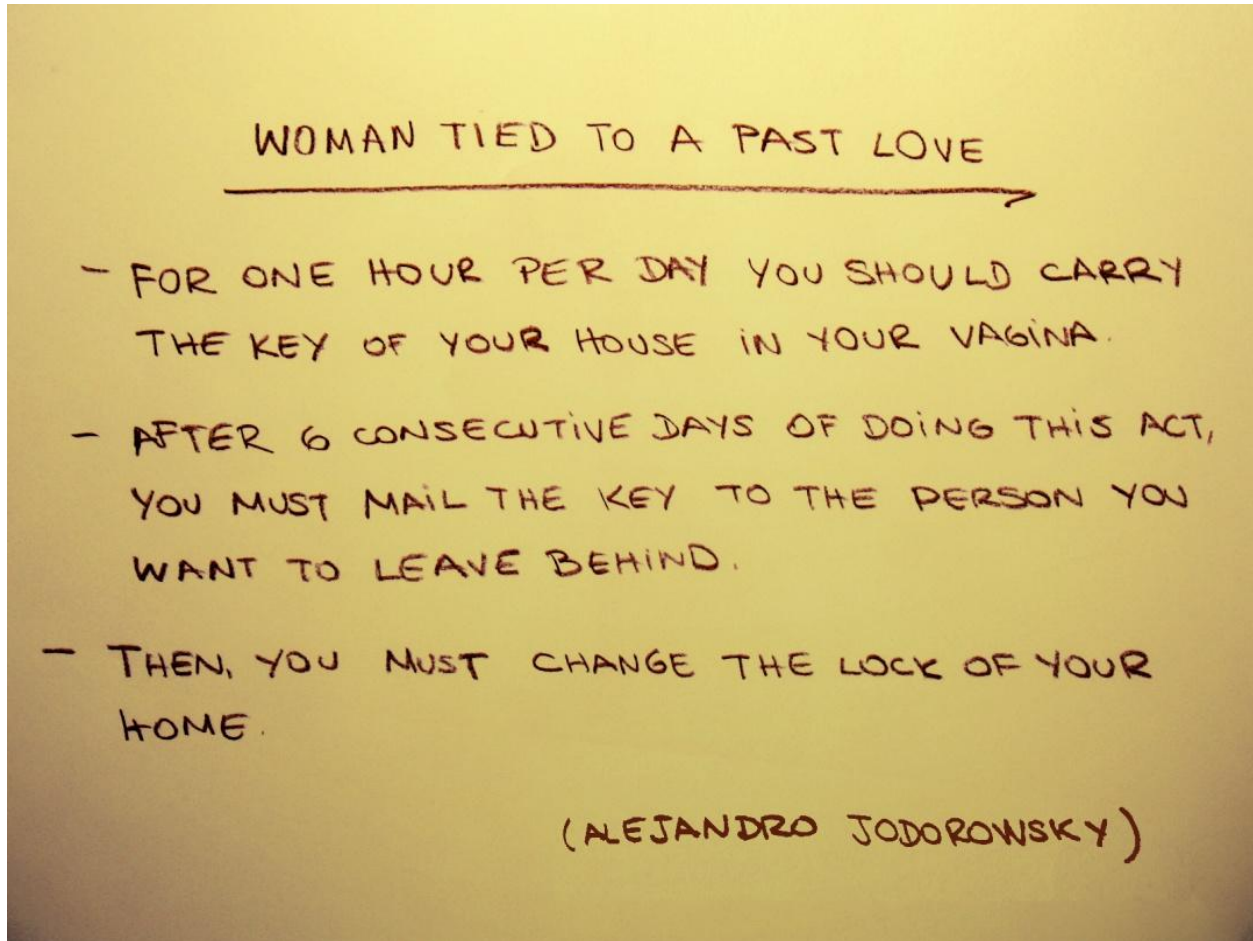 WOMAN TIED TO A PAST LOVE
- FOR ONE HOUR PER DAY YOU SHOULD CARRY
THE KEY OF YOUR HOUSE IN YOUR VAGINA.
- AFTER 6 CONSECUTIVE DAYS OF DOING THIS ACT,
YOU MUST MAIL THE KEY TO THE PERSON YOU
WANT TO LEAVE BEHIND.
- THEN, YOU MUST CHANGE THE LOCK OF YOUR
HOME.
(ALEJANDRO JODOROWSKY)